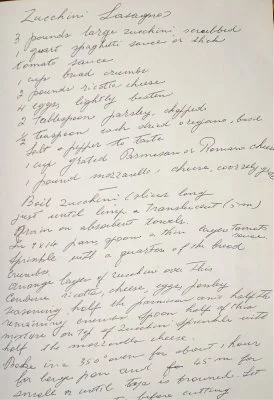 Zucchini Lasagna
3 pounds large zucchini scrubbed
1 quart spaghetti sauce or thick
tomato sauce
1 cup bread crumbs
2 pounds ricotta cheese
4 eggs, lightly beaten
2 tablespoon parsley, chopped
1/2 teaspoon each dried oregano, basil
Salt & pepper to taste
1 cup grated Parmesan or Romano cheese
1 pound mozzarella cheese, coarsely
Boil zucchini (slices long
just until limp & translucent (5 m)
Drain on absorbent towels.
In 9x14 pan, spoon a thin layer tomato sauce
Sprinkle with a quarter of the bread
crumbs.
Arrange layer of zucchini over this
Combine ricotta cheese, eggs, parsley
seasoning, half the parmesan and half the
remaining crumbs. Spoon half of this
mixture on top of zucchini sprinkle with
half the mozzarella cheese.
Bake in a 350° oven for about 1 hour
for large pan and 45 m for
small or until top is browned. Let
before cutting